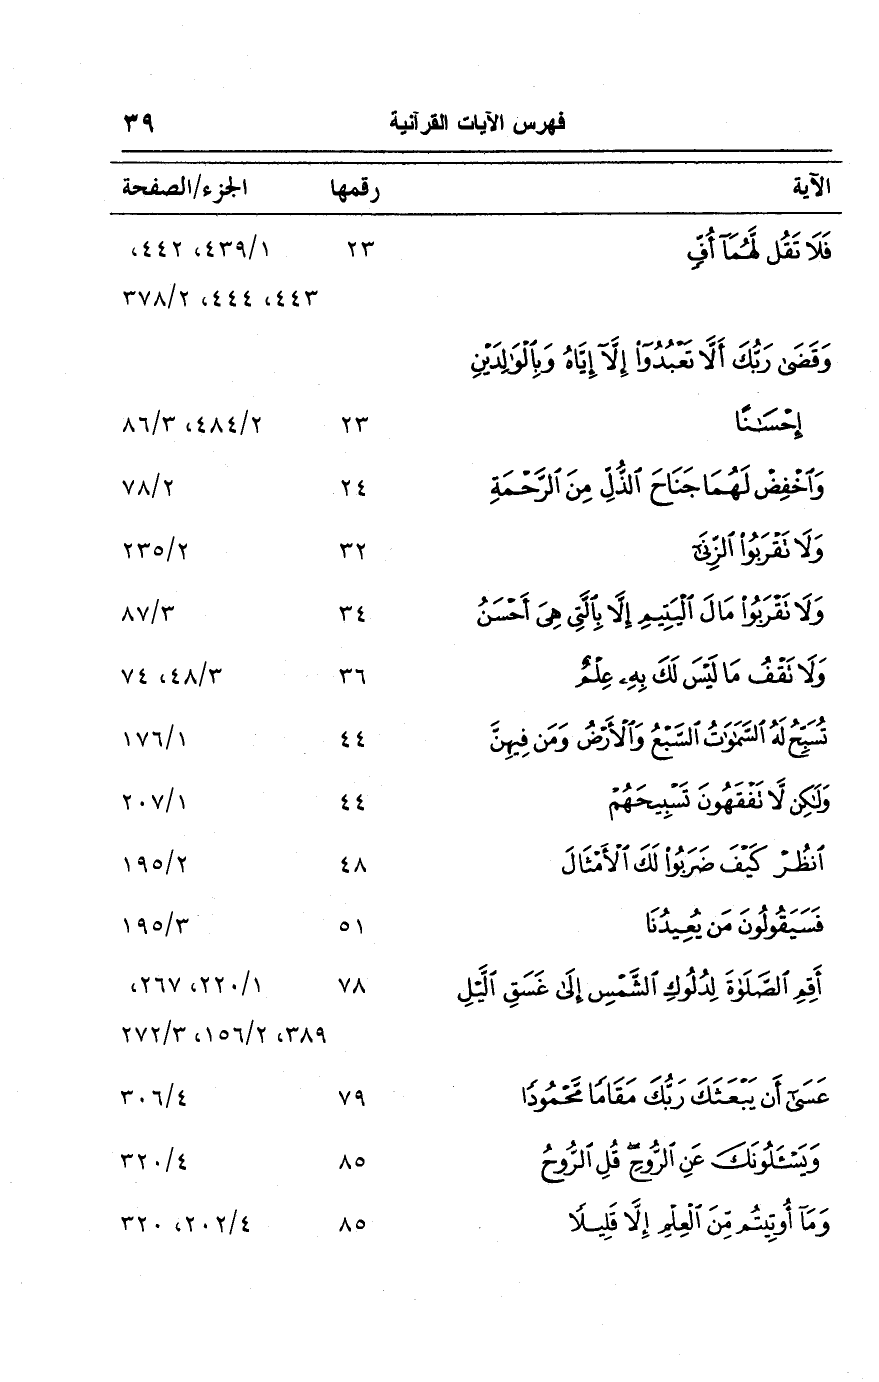 فهرس الآيات القرآنية ٣٩
الآية رقمها الجزء/الصفحة
فَلَا تَقُل لَّهُمَآ أُفٍّ ٢٣ ٤٣٩/١، ٤٤٢،
٤٤٣، ٤٤٤، ٣٧٨/٢
وَقَضَىٰ رَبُّكَ أَلَّا تَعْبُدُوٓا۟ إِلَّآ إِيَّاهُ وَبِٱلْوَٰلِدَيْنِ
إِحْسَـٰنًا ٢٣ ٤٨٤/٢، ٨٦/٣
وَٱخْفِضْ لَهُمَا جَنَاحَ ٱلذُّلِّ مِنَ ٱلرَّحْمَةِ ٢٤ ٧٨/٢
وَلَا تَقْرَبُوا۟ ٱلزِّنَىٰٓ ٣٢ ٢٣٥/٢
وَلَا تَقْرَبُوا۟ مَالَ ٱلْيَتِيمِ إِلَّا بِٱلَّتِى هِىَ أَحْسَنُ ٣٤ ٨٧/٣
وَلَا تَقْفُ مَا لَيْسَ لَكَ بِهِۦ عِلْمٌ ٣٦ ٤٨/٣، ٧٤
تُسَبِّحُ لَهُ ٱلسَّمَـٰوَٰتُ ٱلسَّبْعُ وَٱلْأَرْضُ وَمَن فِيهِنَّ ٤٤ ١٧٦/١
وَلَـٰكِن لَّا تَفْقَهُونَ تَسْبِيحَهُمْ ٤٤ ٢٠٧/١
ٱنظُرْ كَيْفَ ضَرَبُوا۟ لَكَ ٱلْأَمْثَالَ ٤٨ ١٩٥/٢
فَسَيَقُولُونَ مَن يُعِيدُنَا ٥١ ١٩٥/٣
أَقِمِ ٱلصَّلَوٰةَ لِدُلُوكِ ٱلشَّمْسِ إِلَىٰ غَسَقِ ٱلَّيْلِ ٧٨ ٢٢٠/١، ٢٦٧،
٣٨٩، ١٥٦/٢، ٢٧٢/٣
عَسَىٰٓ أَن يَبْعَثَكَ رَبُّكَ مَقَامًا مَّحْمُودًا ٧٩ ٣٠٦/٤
وَيَسْـَٔلُونَكَ عَنِ ٱلرُّوحِ ۖ قُلِ ٱلرُّوحُ ٨٥ ٣٢٠/٤
وَمَآ أُوتِيتُم مِّنَ ٱلْعِلْمِ إِلَّا قَلِيلًا ٨٥ ٢٠٢/٤، ٣٢٠